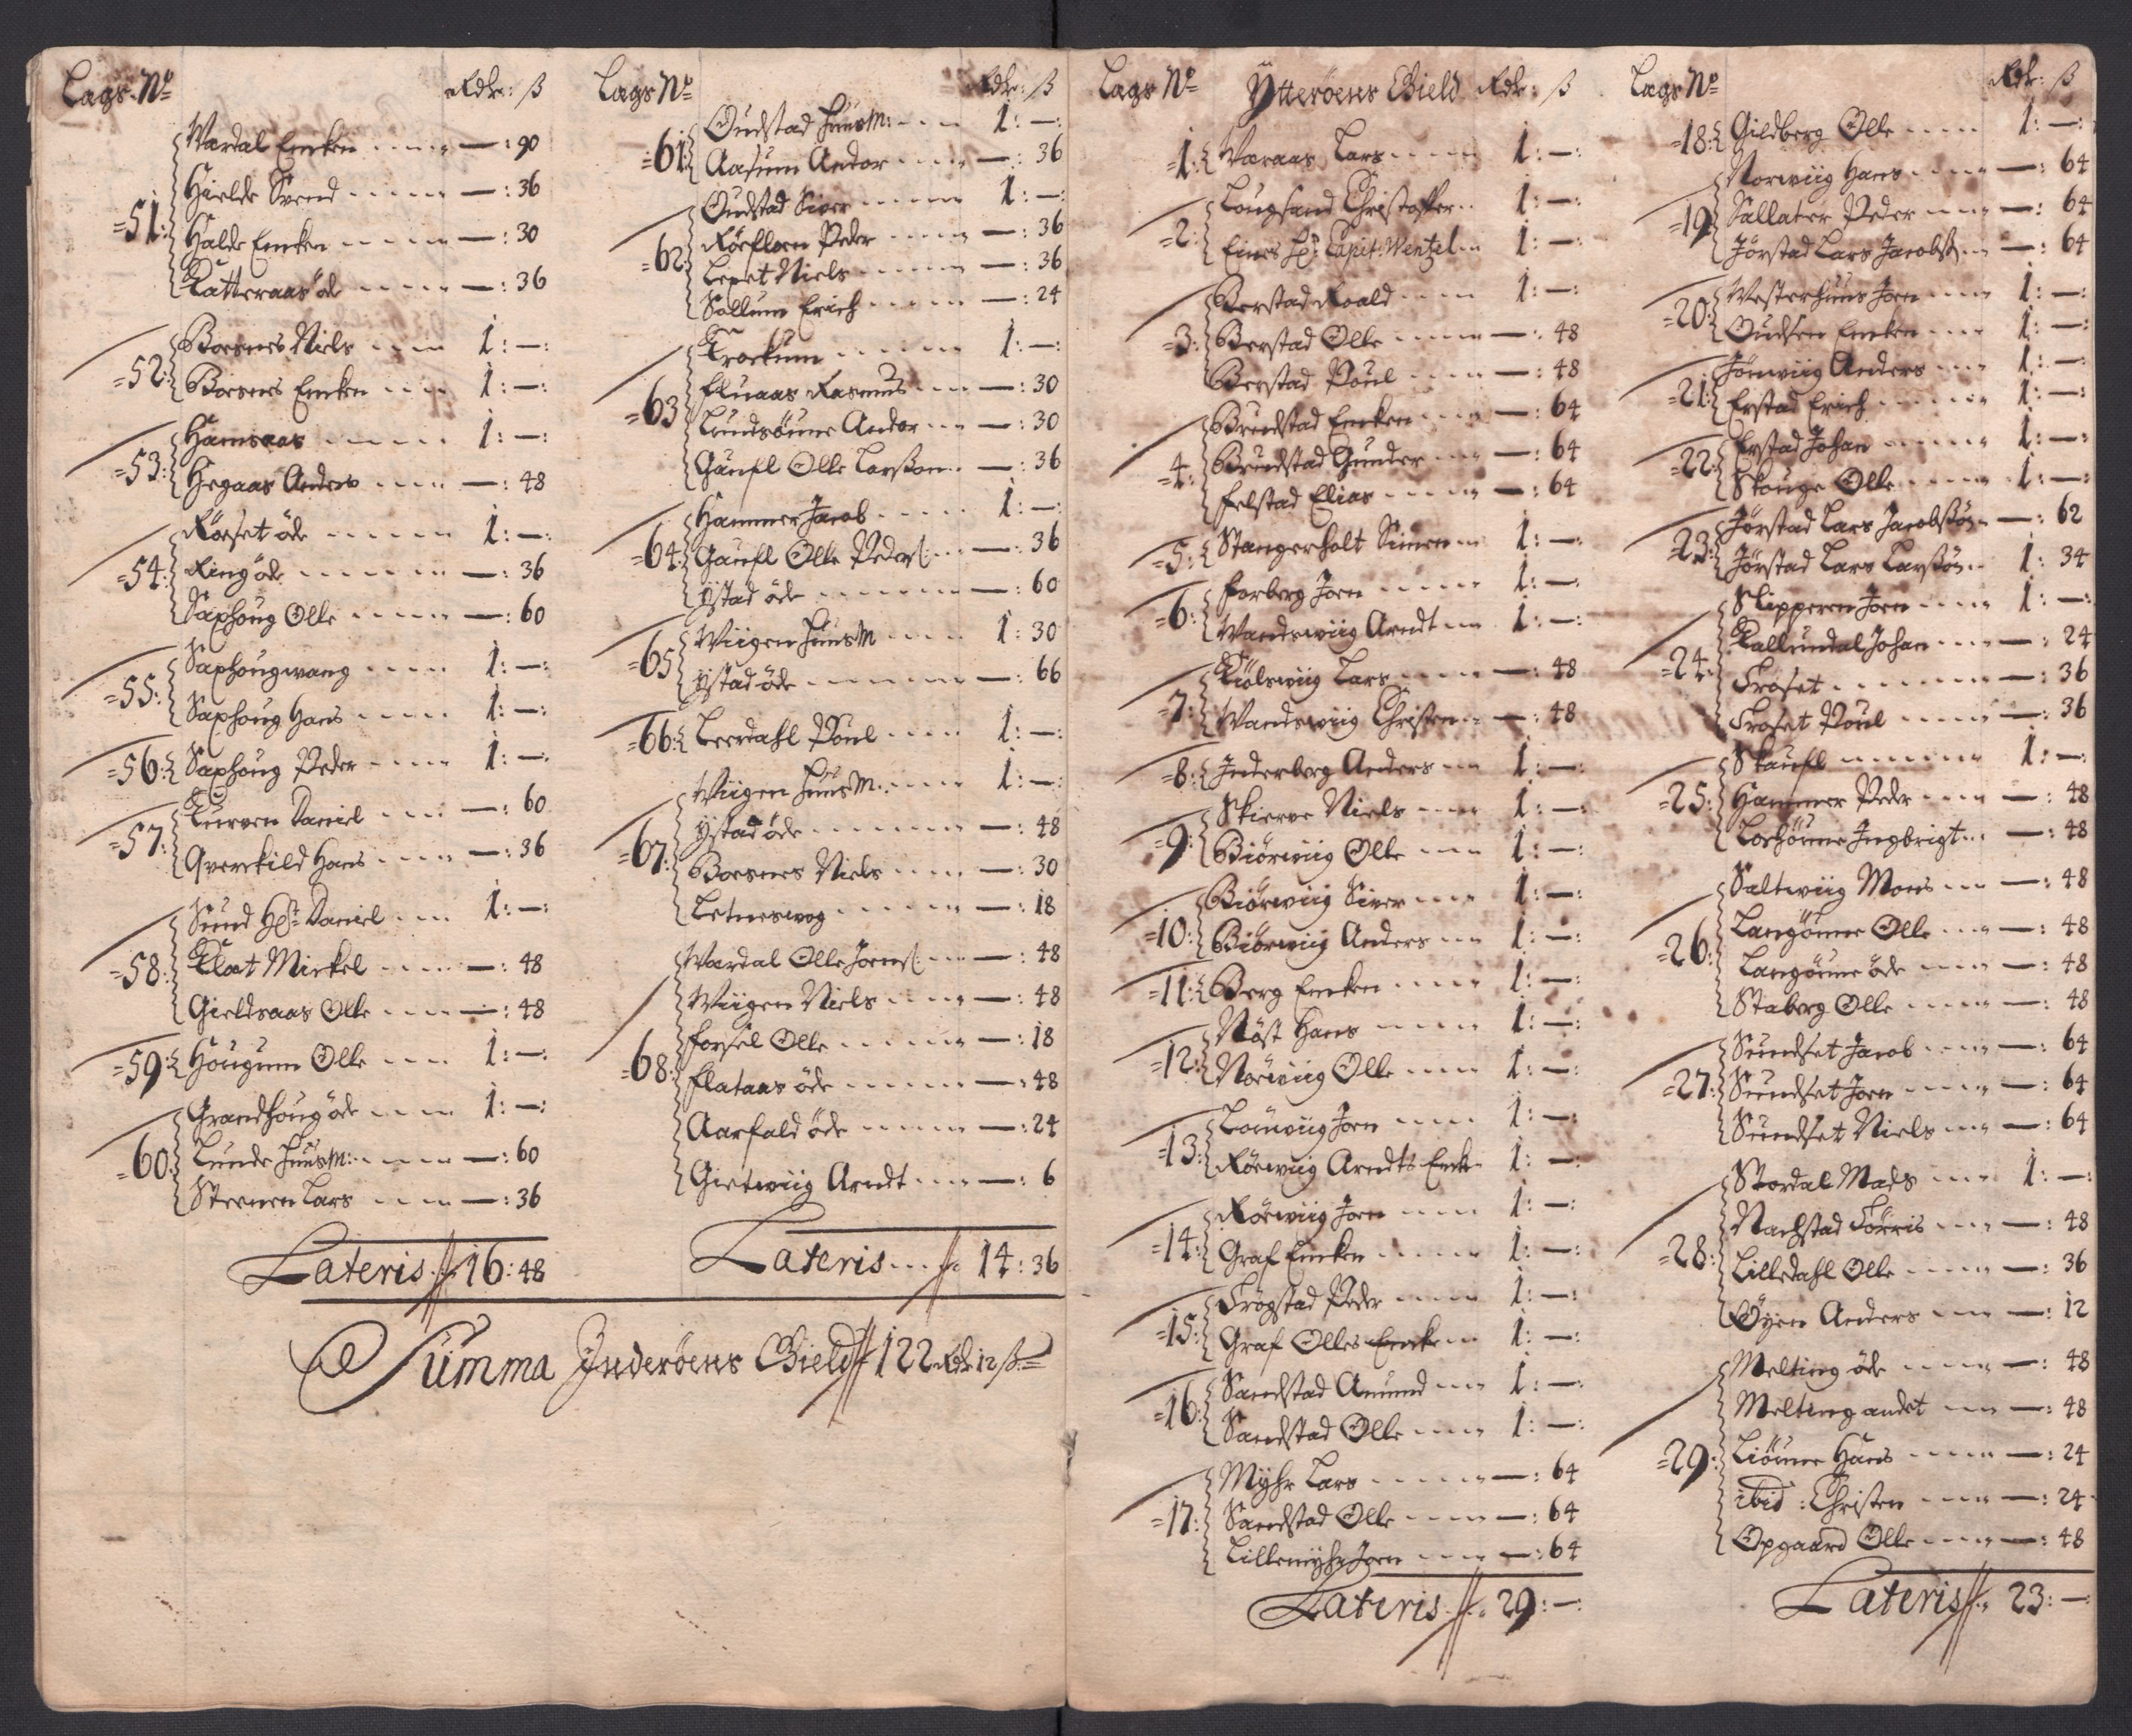 Lags N° Rdr: ß
=51: Wærdal Encken - - - - — : 90
Hielde Svend - - - - — : 36
Halde Encken - - - - — : 30
Katteraas öde - - - - — : 36
=52: Borsnes Niels - - - - 1 : — :
Borsnes Encken - - - - 1 : — :
=53: Hamraas - - - - 1 : — :
Hegaas Anders - - - - — : 48
=54: Rörset öde - - - - 1 : — :
Ring öde - - - - — : 36
Saxhoug Olle - - - - — : 60
=55: Saxhougwang - - - - 1 : — :
Saxhoug Hans - - - - 1 : — :
=56: Saxhoug Peder - - - - 1 : — :
=57: Kurven Daniel - - - — : 60
Qverkild Hans - - - - — : 36
=58: Sund Hr Daniel - - - 1 : — :
Klæt Mickel - - - - — : 48
Gieldsaas Olle - - - - — : 48
=59: Hougum Olle - - - - 1 : — :
=60: Grandhoug öde - - - - 1 : — :
Lunde HuusM: - - - - — : 60
Steenen Lars - - - - — : 36
Lateris 16 : 48
Lags N° Rdr: ß
=61: Oudstad HuusM: - - - 1 : — :
Aasum Andor - - - - — : 36
=62: Oudstad Siver - - - - 1 : — :
Rörfloen Peder - - - - — : 36
Lepet Niels - - - - — : 36
Sallum Erich - - - - — : 24
=63: Krockum - - - - 1 : — :
Fluaas Rasmus - - - — : 30
Lundsöune Andor - - - — : 30
Gaufl Olle Larsson - - — : 36
=64: Hammer Jacob - - - - 1 : — :
Gaufl Olle Peders: - - - — : 36
Ystad öde - - - - — : 60
=65: Wiigen HuusM - - - - 1 : 30
Ystad öde - - - - — : 66
=66: Leerdahl Poul - - - - 1 : — :
=67: Wiigen HuusM: - - - - 1 : — :
Ystad öde - - - - — : 48
Borsnes Niels - - - - — : 30
Letneswog - - - - — : 18
=68: Wærdal Olle Joens: - - - — : 48
Wiigen Niels - - - - — : 48
Forsel Olle - - - - — : 18
Flataas öde - - - - — : 48
Aarfald öde - - - - — : 24
Gietwiig Arndt - - - - — : 6
Lateris - - - 14 : 36
Summa Inderöens Gield 122 Rdr 12 ß
Lags N° Ytteröens Gield Rdr: ß
=1: Waraas Lars - - - - 1 : — :
=2: Lougsand Christoffer - - 1 : — :
Eines Hr: Capit: Wentzel - - 1 : — :
=3: Berstad Roald - - - - 1 : — :
Berstad Olle - - - - — : 48
Berstad Poul - - - - — : 48
=4: Brustad Encken - - - — : 64
Brustad Gunder - - - — : 64
Felstad Elias - - - - — : 64
=5: Stangerholt Simen - - 1 : — :
=6: Forberg Joen - - - - 1 : — :
Wandswiig Arndt - - - 1 : — :
=7: Kiölswiig Lars - - - - — : 48
Wandswiig Christen - - — : 48
=8: Inderberg Anders - - - 1 : — :
=9: Skierve Niels - - - - 1 : — :
Biörwiig Olle - - - 1 : — :
=10: Biörwiig Siver - - - 1 : — :
Biörwiig Anders - - - 1 : — :
=11: Berg Encken - - - - 1 : — :
=12: Nöst Hans - - - - 1 : — :
Nörwiig Olle - - - 1 : — :
=13: Louwiig Joen - - - - 1 : — :
Rörwiig Arndts Enck - 1 : — :
=14: Rörwiig Joen - - - - 1 : — :
Graf Encken - - - - 1 : — :
=15: Frögstad Peder - - - - 1 : — :
Graf Olles Encken - - 1 : — :
=16: Sandstad Amund - - - 1 : — :
Sandstad Olle - - - - 1 : — :
=17: Myhr Lars - - - - — : 64
Sandstad Olle - - - - — : 64
Lillemyhr Joen - - - - — : 64
Lateris 29 : — :
Lags N° Rdr: ß
=18: Gildberg Olle - - - - 1 : — :
=19: Norwiig Hans - - - - — : 64
Sallater Peder - - - - — : 64
Jörstad Lars Jacobss: - - — : 64
=20: Westerhuus Joen - - - 1 : — :
Oudsen Encken - - - 1 : — :
=21: Jönwiig Anders - - - 1 : — :
Erstad Erich - - - - 1 : — :
=22: Erstad Johan - - - - 1 : — :
Skouge Olle - - - - 1 : — :
=23: Jörstad Lars Jacobssön - - — : 62
Jörstad Lars Larssön - - 1 : 34
=24: Skipperen Joen - - - - 1 : — :
Kallundal Johan - - - — : 24
Froset - - - - — : 36
Froset Poul - - - - — : 36
=25: Skaufl - - - - 1 : — :
Hammer Peder - - - - — : 48
Lorhöune Ingbrigt - - - — : 48
=26: Saltwiig Mons - - - — : 48
Langöune Olle - - - — : 48
Langöune öde - - - - — : 48
Staberg Olle - - - - — : 48
=27: Sundset Jacob - - - - — : 64
Sundset Joen - - - - — : 64
Sundset Niels - - - - — : 64
=28: Stordal Mads - - - 1 : — :
Nachstad Förris - - - — : 48
Lilledahl Olle - - - - — : 36
Öyen Anders - - - — : 12
=29: Melting öde - - - - — : 48
Melting andet - - - — : 48
Liöune Hans - - - - — : 24
ibid : Christen - - - - — : 24
Opgaard Olle - - - - — : 48
Lateris 23 : — :